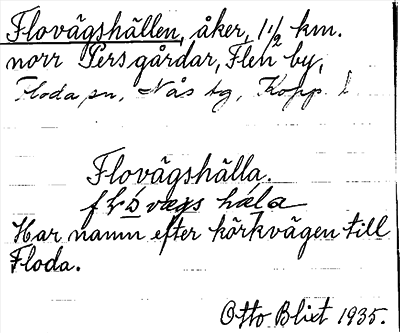 Flovägshällen, åker, 1½ km.
norr Pers gårdar, Flen by,
Floda sn, Nås tg, Kopp. l
Flovägshälla.
Har namn efter körkvägen till
Floda.
Otto Blixt 1935.